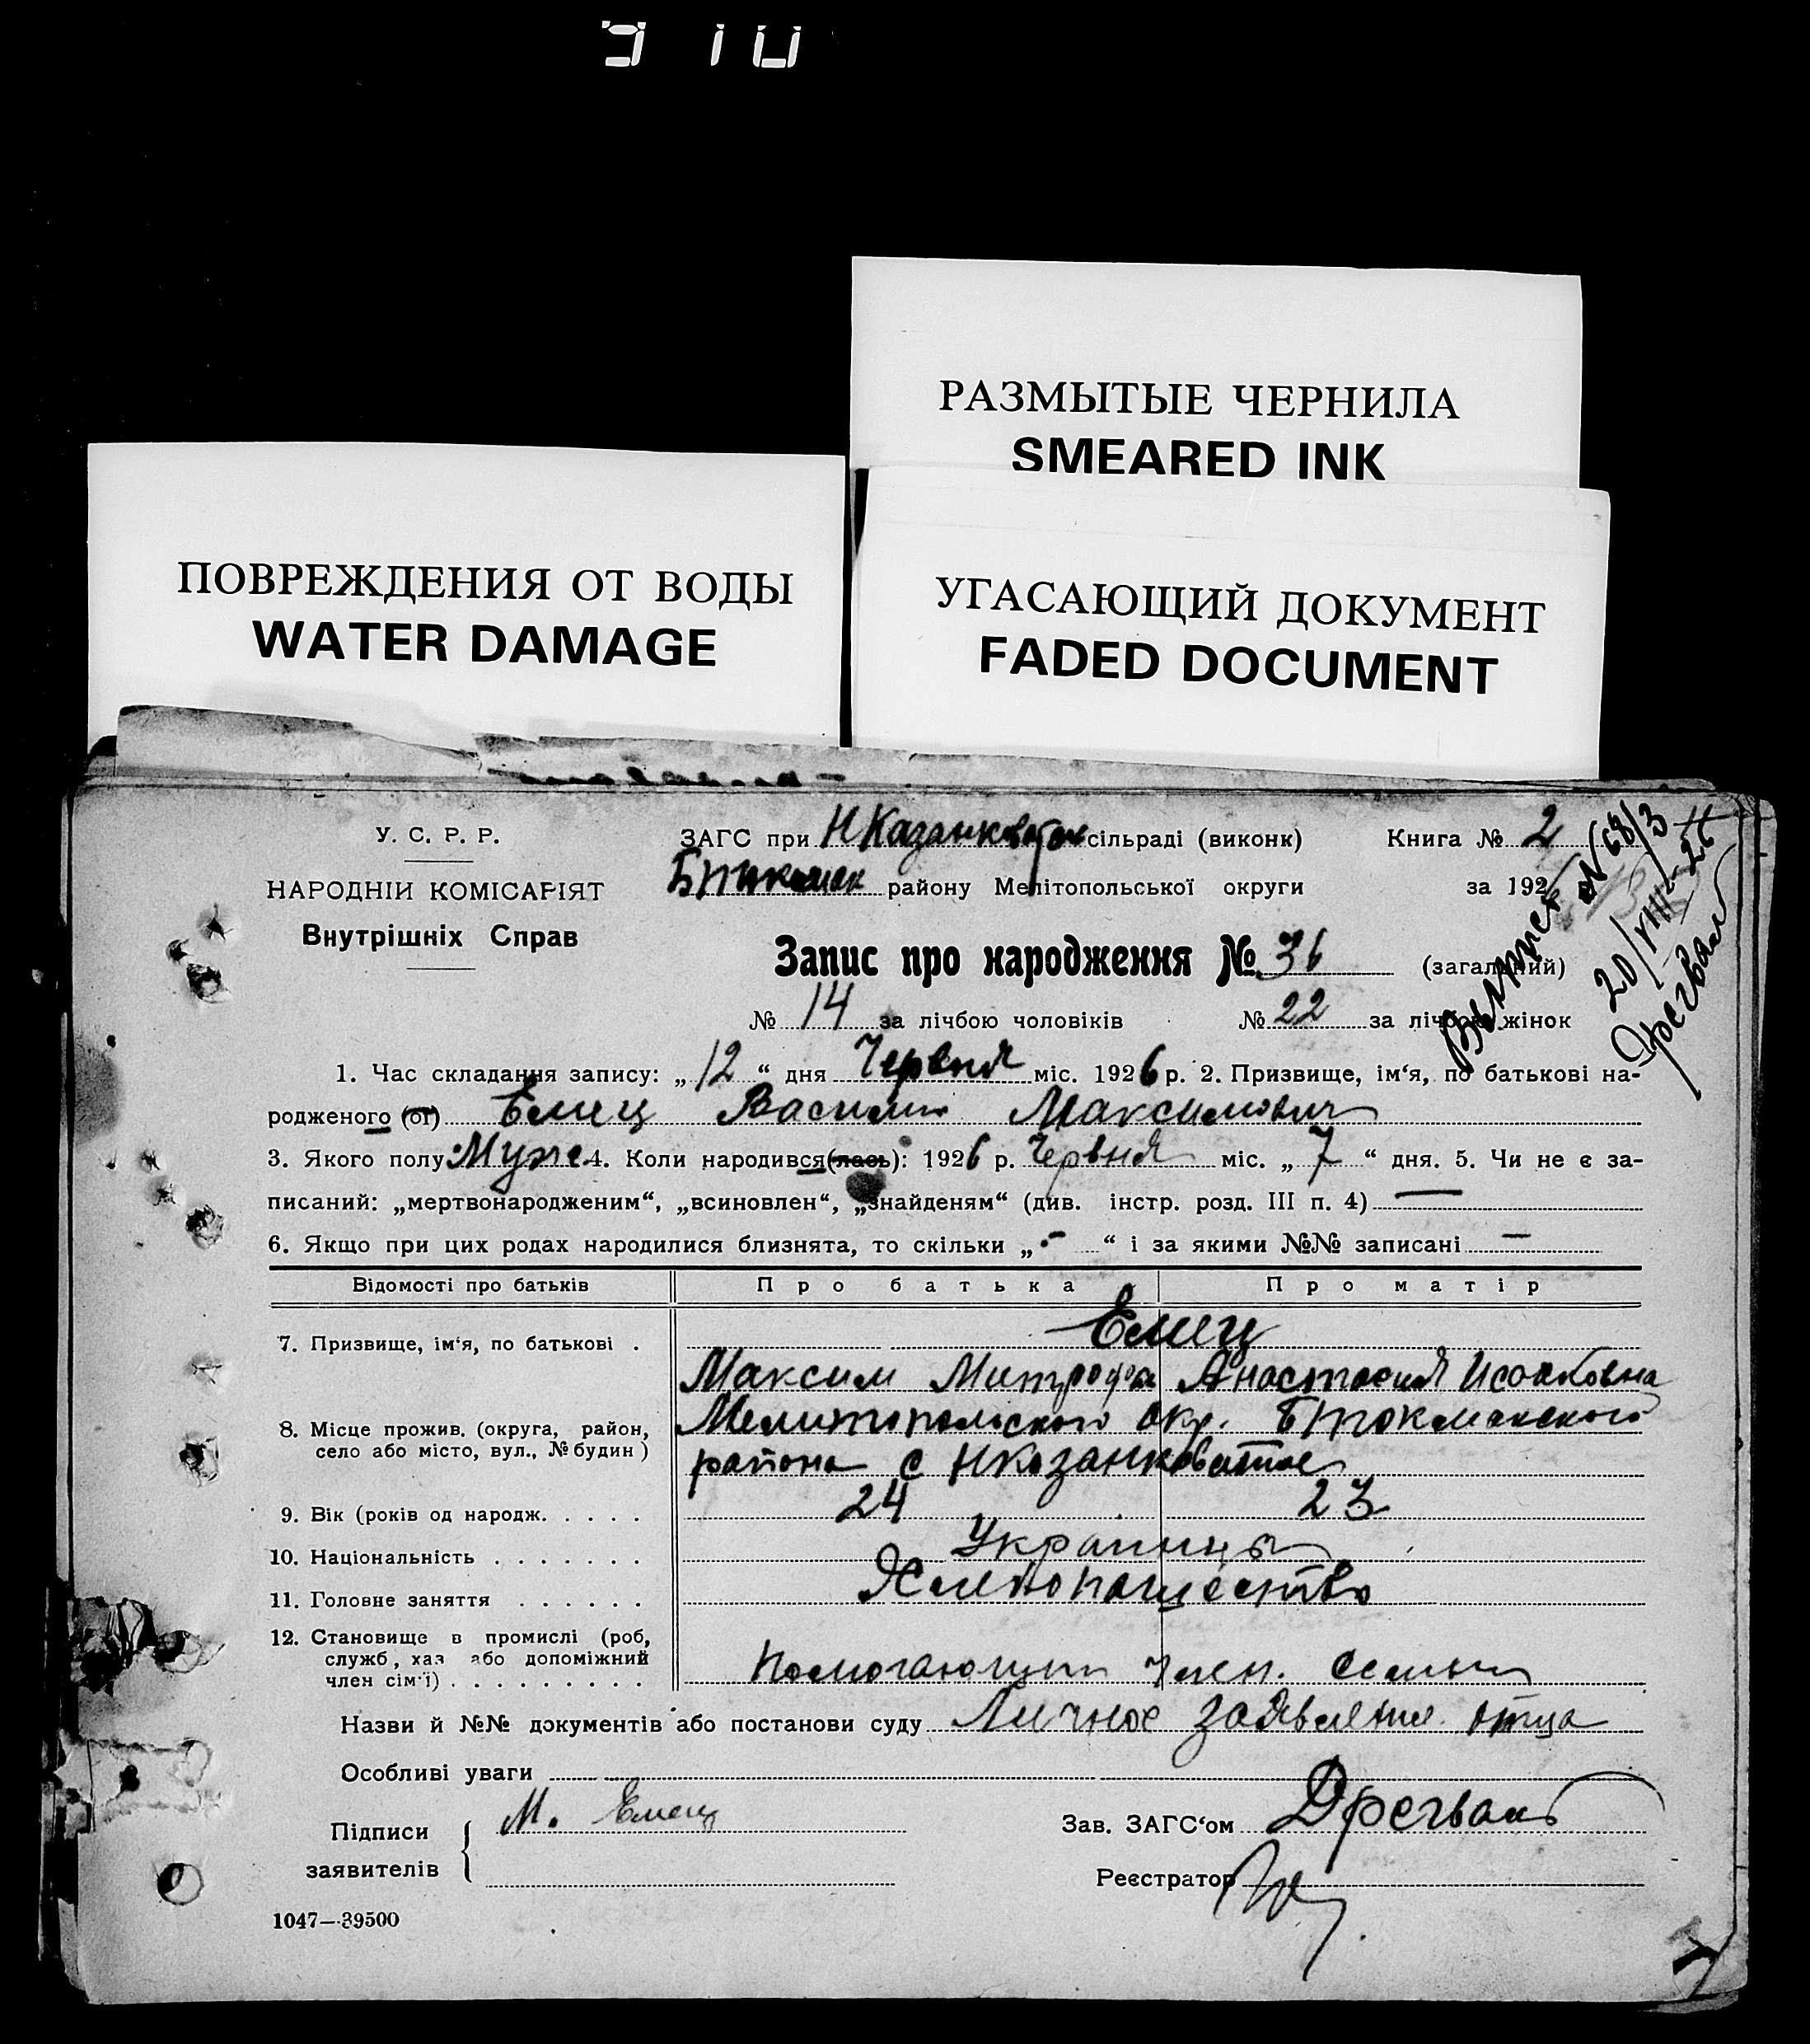 РАЗМЫТЫЕ ЧЕРНИЛА
SMEARED INK
ПОВРЕЖДЕНИЯ ОТ ВОДЫ
WATER DAMAGE
УГАСАЮЩИЙ ДОКУМЕНТ
FADED DOCUMENT
У. С. Р. Р.
НАРОДНІЙ КОМІСАРІЯТ
Внутрішніх Справ
ЗАГС при Н Казанковатом сільраді (виконк)
району Мелітопольської округи
Книга № 2
за 1926
№ 68/3
20/VIII-26
Дрегваль
Запис про народження № 36 (загальний)
№ 14 за лічбою чоловіків № 22 за лічбою жінок
1. Час складання запису: „12“ дня Червня міс. 1926 р. 2. Призвище, ім‘я, по батькові на-
родженого (ої) Емец Василий Максимович
3. Якого полу Муж. 4. Коли народився(лась): 1926 р. Червня міс. „7“ дня. 5. Чи не є за-
писаний: „мертвонародженим“, „всиновлен“, „знайденям“ (див. інстр. розд. III п. 4) —
6. Якщо при цих родах народилися близнята, то скільки „-“ і за якими №№ записані —
Відомості про батьків Про батька Про матір
7. Призвище, ім‘я, по батькові . Емец
Максим Митрофа Анастасия Исааковна
8. Місце прожив. (округа, район, село або місто, вул., № будин) Мелитопольского окр. Бтокмакского
района с Нказанковатое
9. Вік (років од народж. . . . . 24 23
10. Національність . . . . . . . Украинцы
11. Головне заняття . . . . . . Хлебопашество
12. Становище в промислі (роб,
служб, хаз або допоміжний
член сім‘ї) . . . . . . . . . Помогающий член. семьи
Назви й №№ документів або постанови суду Личное заявление отца
Особливі уваги
Підписи
заявителів
М. Емец
Зав. ЗАГС‘ом Дрегваль
Реєстратор
1047—39500